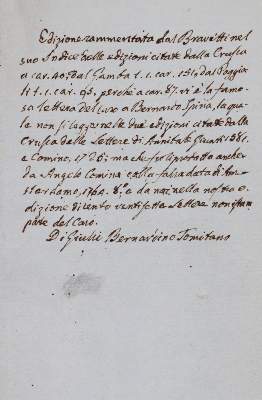 Edizione rammentata dal Bravetti nel
suo Indice delle edizioni citate dalla Crusca
a car. 40; dal Gamba t. 1. car. 151; dal Poggiali
t. 1. car. 93, perchè a car. 87. vi è la famo-
sa lettera del Caro a Bernardo Spina, la qua-
le non si legge nelle due edizioni citate dalla
Crusca delle Lettere di Annibale Giunti 1581.
e Comino, 1726; ma che fu riprodotto anche
da Angelo Comino colla falsa data di Am-
sterdamo, 1764. 8.º e da noi nella nostra e-
dizione di cento ventisette Lettere non istam-
pate del Caro.
Di Giulio Bernardino Tomitano